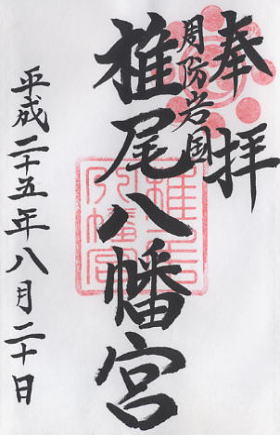 奉拝
周防岩国
椎尾八幡宮
平成二十五年八月二十日
椎尾
八幡宮